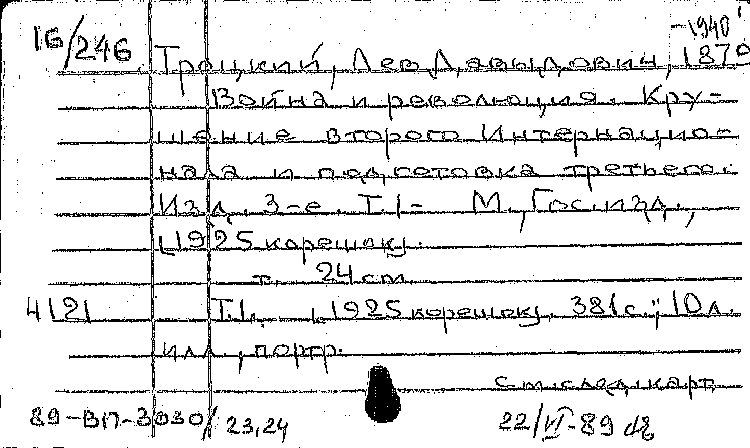 -1940
16/246 Троцкий, Лев Давыдович, 1870
Война и революция. Кру-
шение второго Интернацио-
нала и подготовка третьего.
Изд. 3-е. Т.1- М., Госизд.,
[1925 корешок].
т. 24 cm.
4121 Т.1. [1925 корешок]. 381 с.; 10 л.
илл., портр.
См. след. карт.
89-ВП-3030/23,24 22/VI-89